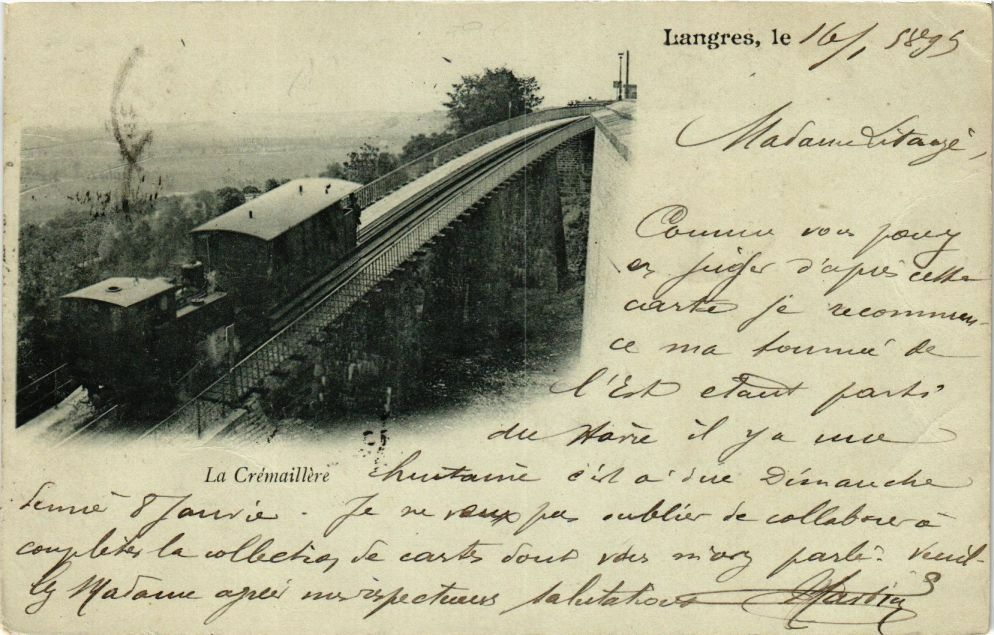 Langres, le 16/1 1899
Madame Litaizé,
Comme vous pouvez
en juger d'après cette
carte je recommen-
ce ma tournée de
l'Est étant parti
du Hâvre il y a une
La Crémaillère
huitaine c'est à dire Dimanche
8 Janvier. Je ne veux pas oublier de collaborer à
compléter la collection de cartes dont vous m'avez parlé. Veuil-
lez Madame agréer mes respectueuses salutations